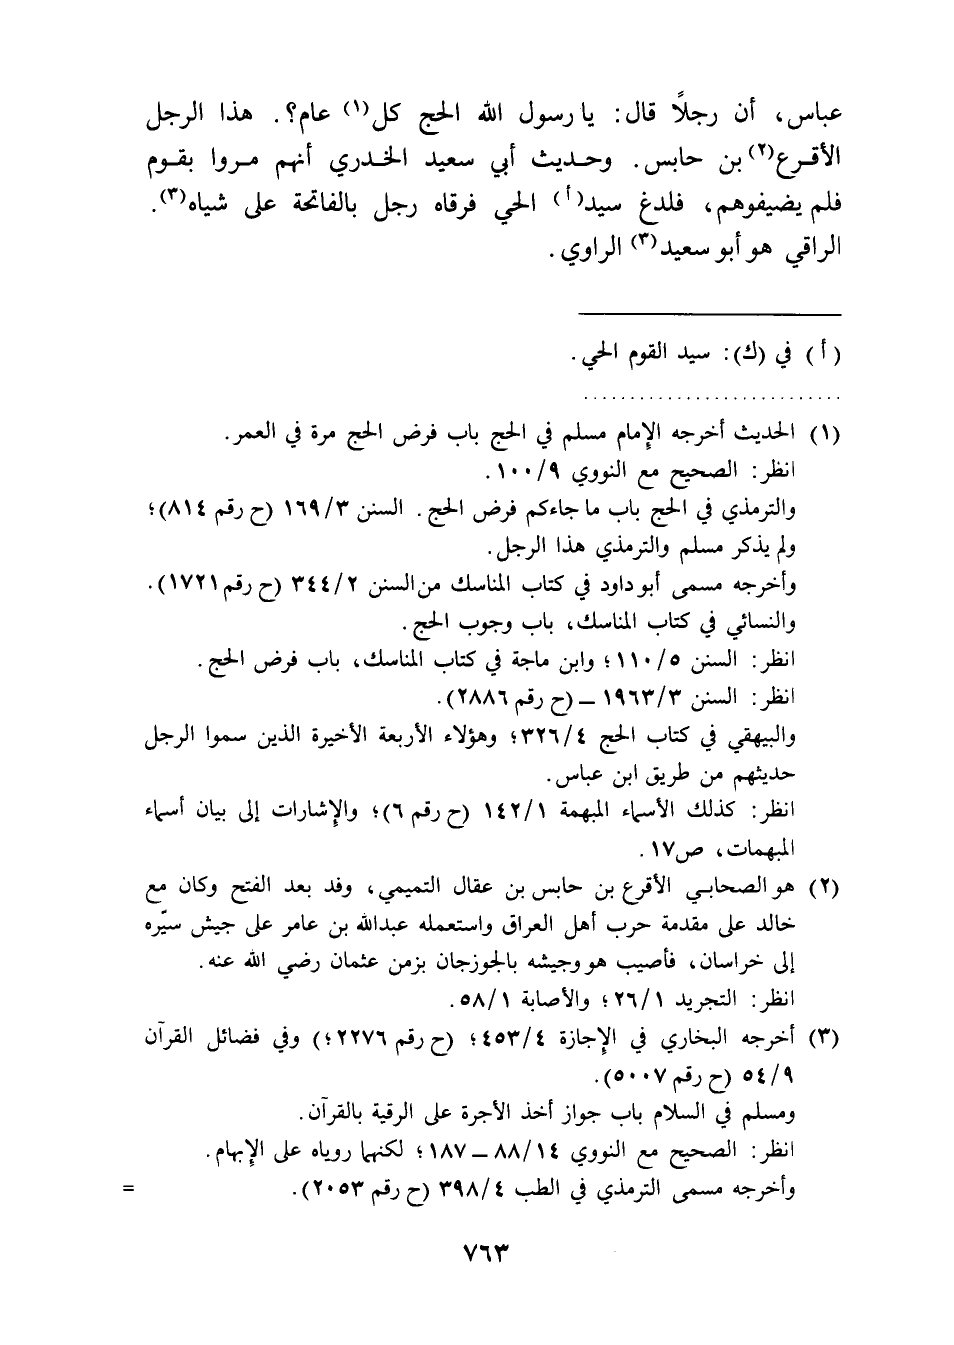 عباس، أن رجلًا قال: يا رسول الله الحج كل(١) عام؟. هذا الرجل
الأقـرع(٢) بن حابس. وحـديث أبي سعيد الخـدري أنهم مـروا بقـوم
فلم يضيفوهم، فلدغ سيد(أ) الحي فرقاه رجل بالفاتحة على شياه(٣).
الراقي هو أبو سعيد(٣) الراوي.
(أ) في (ك): سيد القوم الحي.
(١) الحديث أخرجه الإمام مسلم في الحج باب فرض الحج مرة في العمر.
انظر: الصحيح مع النووي ١٠٠/٩.
والترمذي في الحج باب ما جاءكم فرض الحج. السنن ١٦٩/٣ (ح رقم ٨١٤)؛
ولم يذكر مسلم والترمذي هذا الرجل.
وأخرجه مسمى أبو داود في كتاب المناسك من السنن ٣٤٤/٢ (ح رقم ١٧٢١).
والنسائي في كتاب المناسك، باب وجوب الحج.
انظر: السنن ١١٠/٥؛ وابن ماجة في كتاب المناسك، باب فرض الحج.
انظر: السنن ١٩٦٣/٣ ــ (ح رقم ٢٨٨٦).
والبيهقي في كتاب الحج ٣٢٦/٤؛ وهؤلاء الأربعة الأخيرة الذين سموا الرجل
حديثهم من طريق ابن عباس.
انظر: كذلك الأسماء المبهمة ١٤٢/١ (ح رقم ٦)؛ والإشارات إلى بيان أسماء
المبهمات، ص١٧.
(٢) هو الصحابي الأقرع بن حابس بن عقال التميمي، وفد بعد الفتح وكان مع
خالد على مقدمة حرب أهل العراق واستعمله عبدالله بن عامر على جيش سيّره
إلى خراسان، فأصيب هو وجيشه بالجوزجان بزمن عثمان رضي الله عنه.
انظر: التجريد ٢٦/١؛ والأصابة ٥٨/١.
(٣) أخرجه البخاري في الإجازة ٤٥٣/٤؛ (ح رقم ٢٢٧٦؛) وفي فضائل القرآن
٥٤/٩ (ح رقم ٥٠٠٧).
ومسلم في السلام باب جواز أخذ الأجرة على الرقية بالقرآن.
انظر: الصحيح مع النووي ٨٨/١٤ ــ ١٨٧؛ لكنهما روياه على الإبهام.
وأخرجه مسمى الترمذي في الطب ٣٩٨/٤ (ح رقم ٢٠٥٣). =
٧٦٣